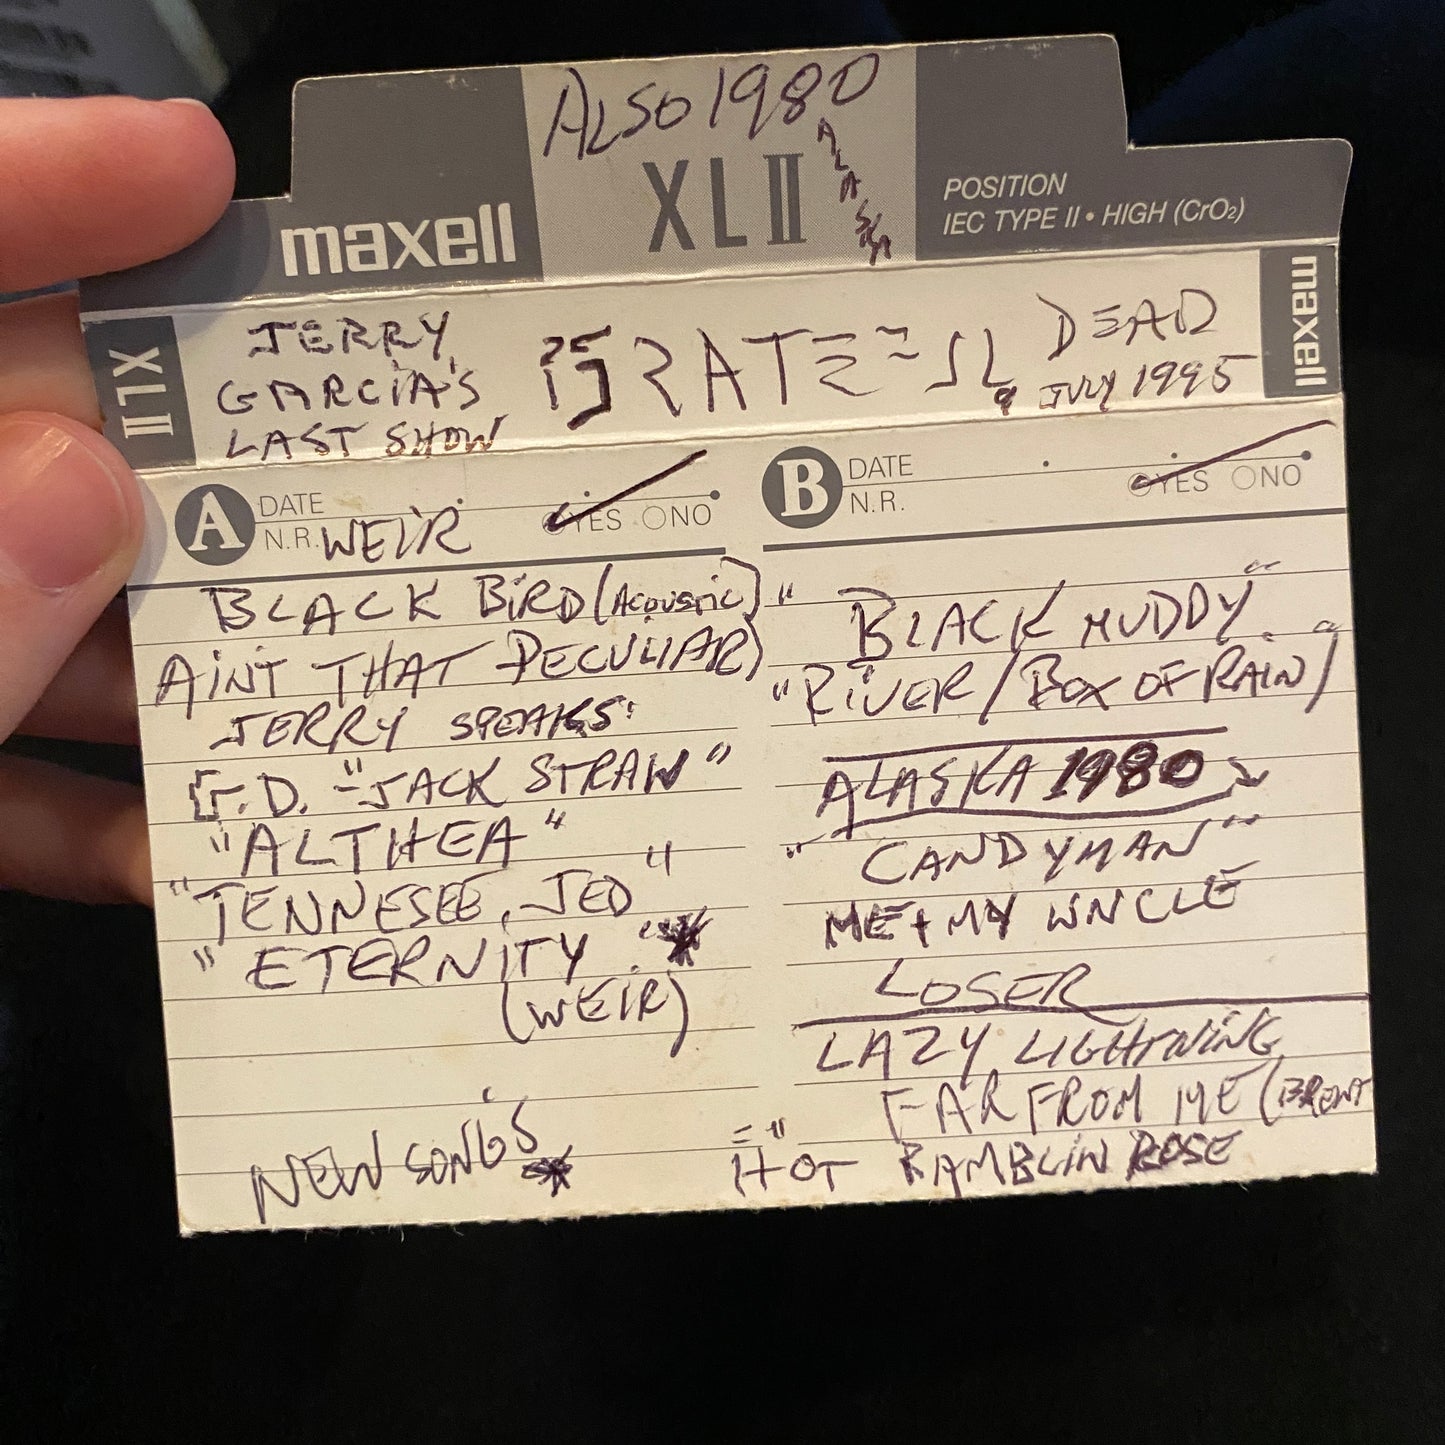 ALSO 1980
ALASKA
maxell
XLII
POSITION
IEC TYPE II • HIGH (CrO2)
XLII
JERRY
GARCIA'S
LAST SHOW
GRATEFUL DEAD
JULY 1995
maxell
A DATE
N.R. WEIR YES NO
BLACK BIRD (ACOUSTIC)
AINT THAT PECULIAR)
JERRY SPEAKS:
G.D. "JACK STRAW"
"ALTHEA"
"TENNESEE, JED"
"ETERNITY."*
(WEIR)
NEW SONGS
*
B DATE
N.R. YES NO
"BLACK MUDDY"
"RIVER / BOX OF RAIN"/
ALASKA 1980
"CANDYMAN"
ME + MY UNCLE
LOSER
LAZY LIGHTNING
FAR FROM ME (BRENT
HOT RAMBLIN ROSE